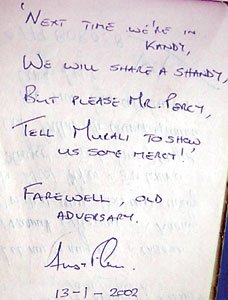 'NEXT TIME WE'RE IN
KANDY,
WE WILL SHARE A SHANDY,
BUT PLEASE MR. PERCY,
TELL MURALI TO SHOW
US SOME MERCY!'
FAREWELL, OLD
ADVERSARY.
13-1-2002